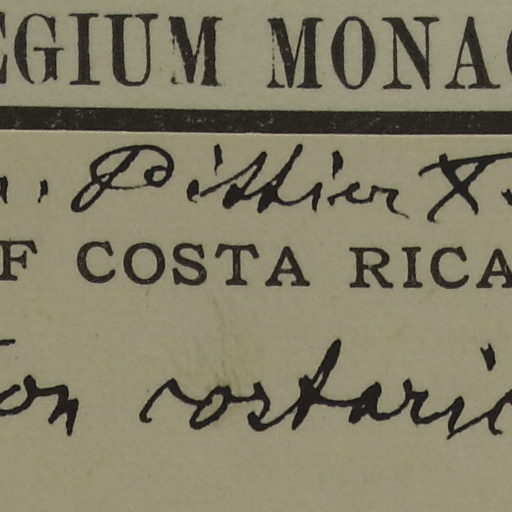 EGIUM MONAC
. Pittier X.
F COSTA RICA
on costaric